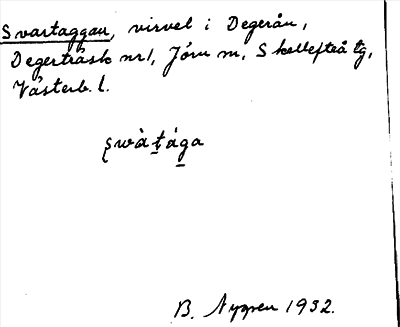 Svartaggan, virvel i Degerån,
Degerträsk nr 1, Jörn sn, Skellefteå tg,
Västerb. l.
B. Nygren 1932.